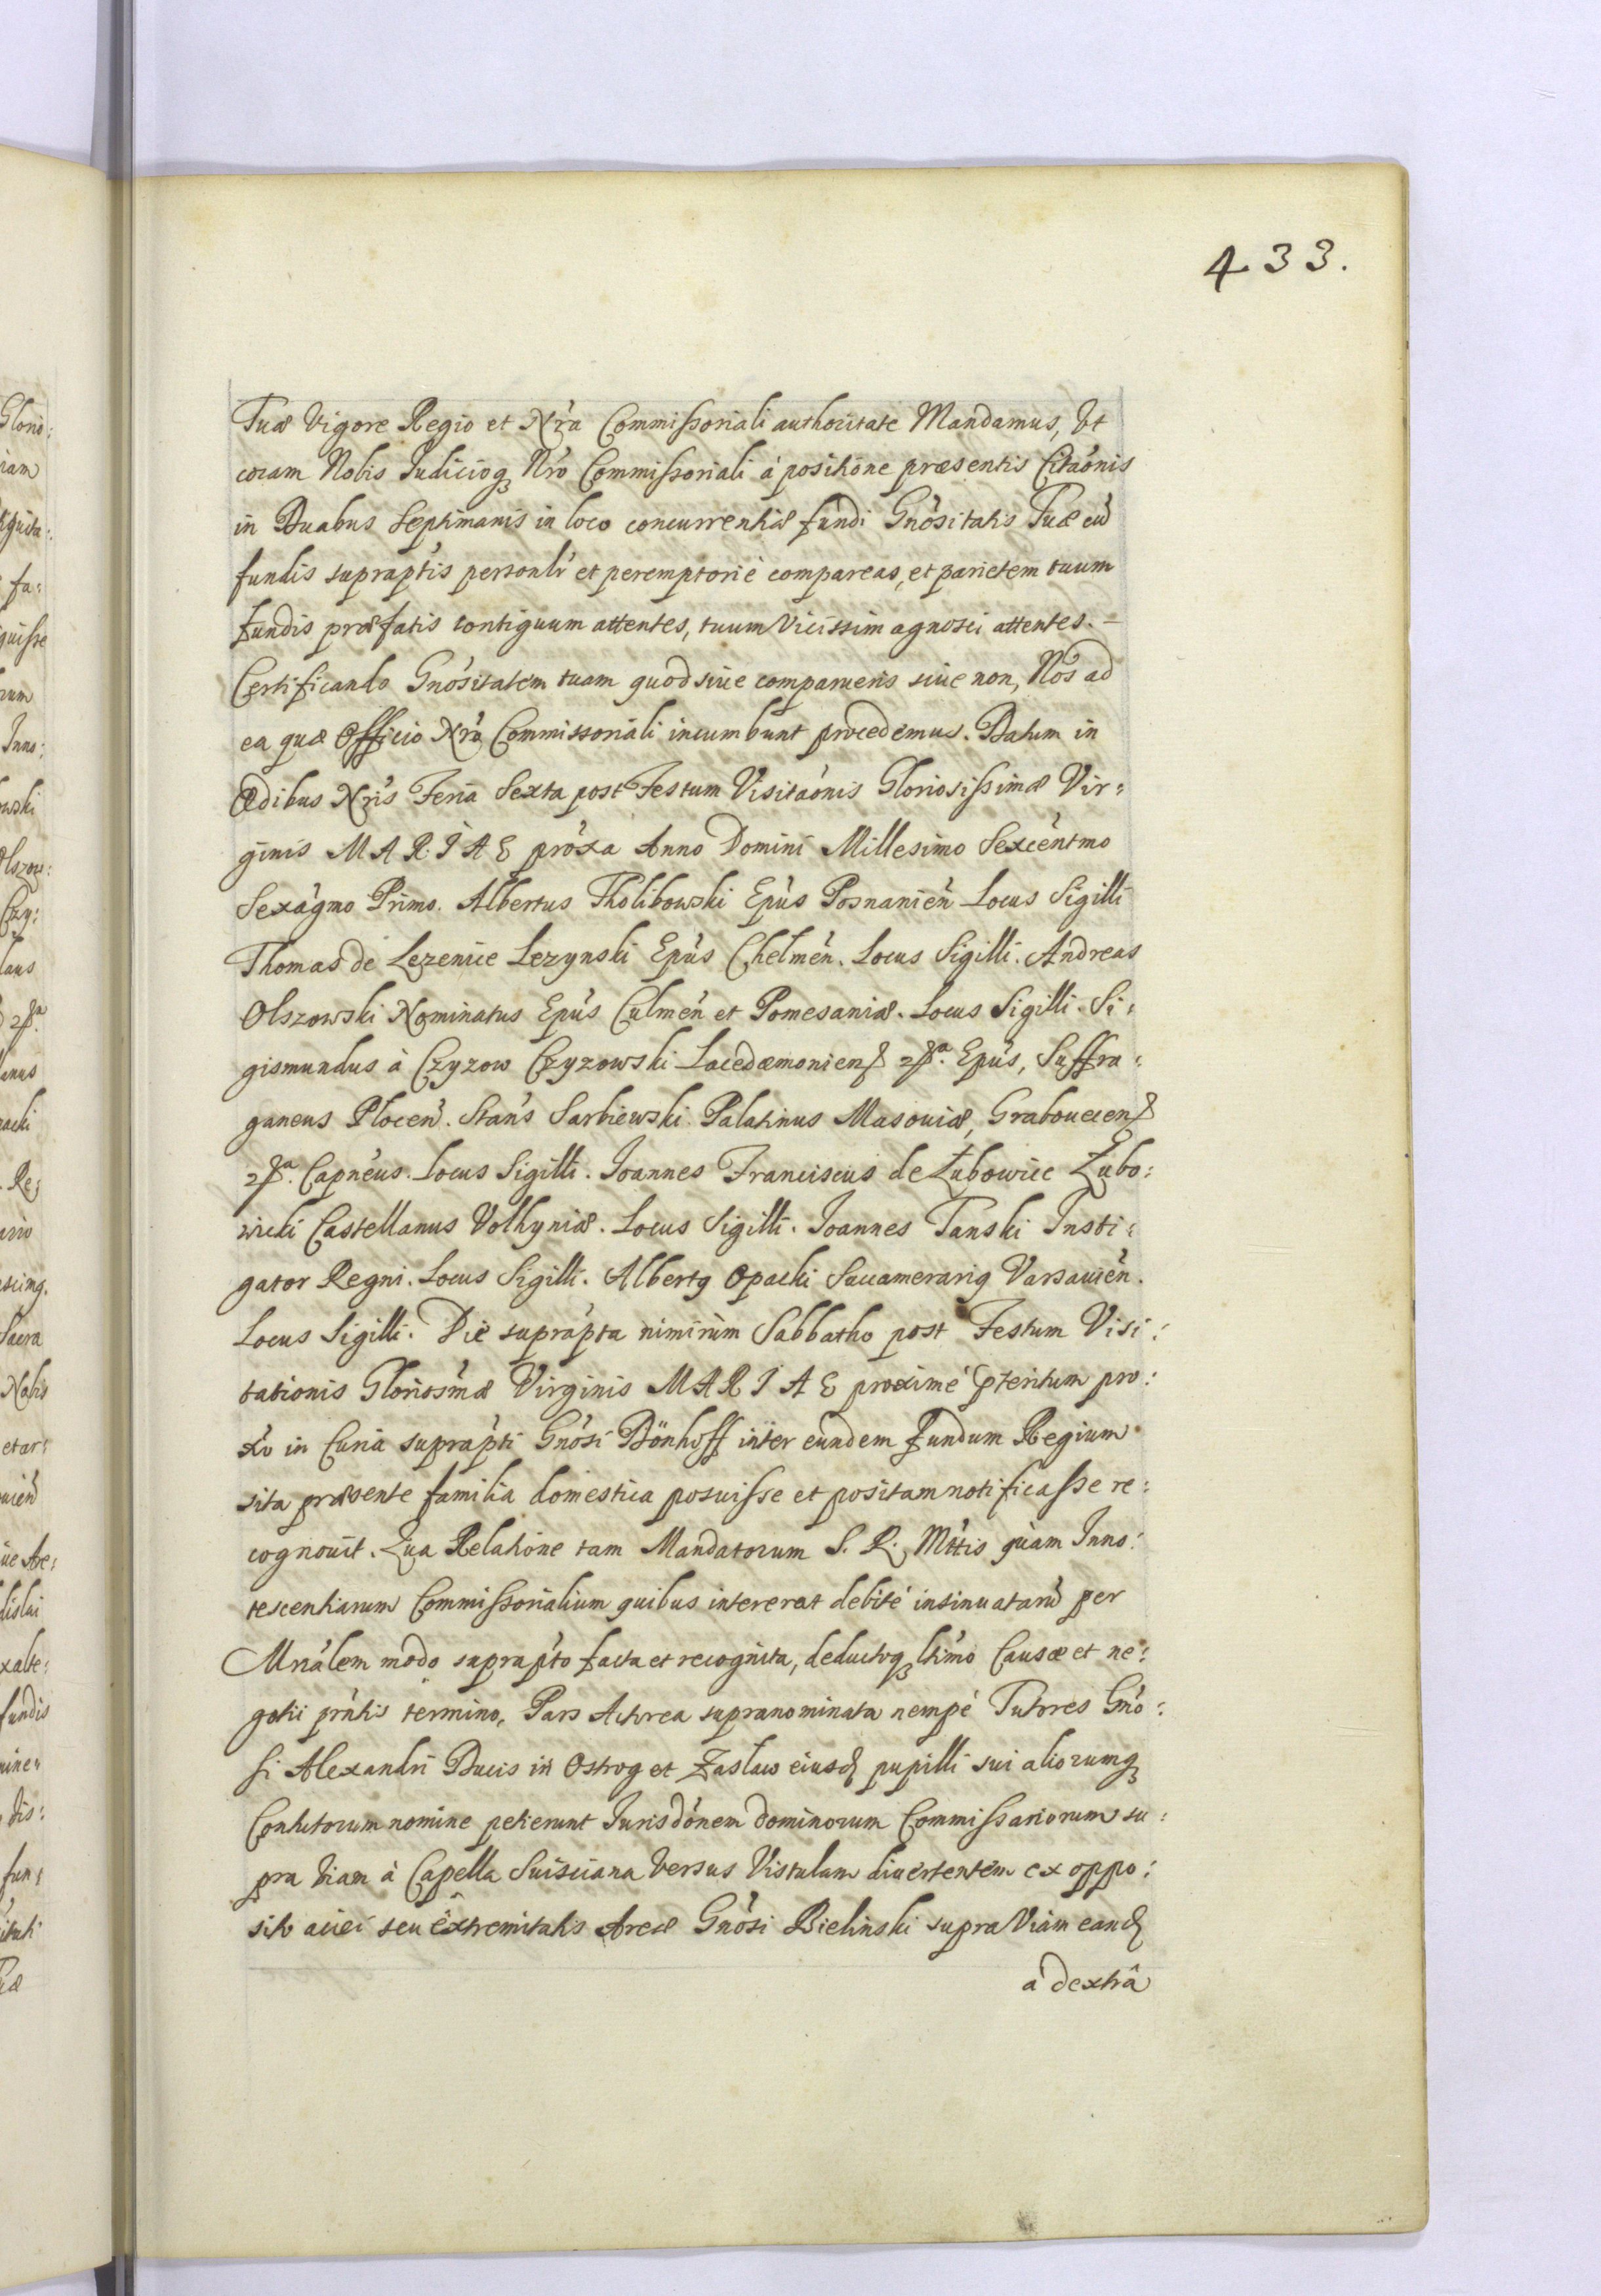 433.
Tuæ Vigore Regio et Nr̃a Commissoriali authoritate Mandamus, Vt
coram Nobis Iudicioq₃ Nr̃o Commissoriali à positione præsentis Cita͠onis
in Duabus Septimanis in loco concurrentiæ fundi Gno͠sitatis Tuæ cu͠
fundis suprap͠tis personl͠r et peremptoriè compareas, et parietem tuum
fundis præfatis contiguum attentes, tuum vicissim agnosci attentes. =
Certificando Gno͠sitatem tuam quod siue comparueris siue non, Nos ad
ea quæ Officio Nr̃o Commissoriali incumbunt procedemus. Datum in
Ædibus Nr̃is Feria Sexta post Festum Visita͠onis Gloriosissimæ Vir:
ginis MARIAE pro͠xa Anno Domini Millesimo Sexcen͠tmo
Sexag͠mo Primo. Albertus Tholibowski Ep͠us Posnanien͠ Locus Sigilli
Thomas de Lezenice Lezynski Ep͠us Chelmen͠. Locus Sigilli. Andreas
Olszowski Nominatus Ep͠us Culmen͠ et Pomesaniæ. Locus Sigilli. Si:
gismundus à Czyzow Czyzowski Lacedæmonien Ep͠us, Suffra:
ganeus Plocen͠. Stan͠s Sarbiewski Palatinus Masouiæ, Grabouecen
Capn͠eus. Locus Sigilli. Ioannes Franciscus de Łubowice Łubo:
wicki Castellanus Volhyniæ. Locus Sigilli. Ioannes Tanski Insti:
gator Regni. Locus Sigilli. Albertq Opacki Succamerariq Varsauien͠.
Locus Sigilli. Die suprap͠ta nimirùm Sabbatho post Festum Visi:
tationis Glorios͠mæ Virginis MARIAE proximè p͠teritum pro:
x͠o in Curia suprap͠ti Gno͠si Dönhoff inter eundem Fundum Regium
sita præsente familia domestica posuisse et positam notificasse re:
cognouit. Qua Relatione tam Mandatorum S. R. Mt͠tis quàm Inno:
tescentiarum Commissorialium quibus intererat debitè insinuataru͠ per
Mr͠ialem modo suprap͠to facta et recognita, deductoq₃ lt͠imo Causæ et ne:
gotii pr͠ntis termino, Pars Actorea supranominata nempè Tutores Gno͠:
si Alexandri Ducis in Ostrog et Zasław eiusd pupilli sui aliorumq₃
Contutorum nomine petierunt Iurisdo͠nem dominorum Commissariorum su:
pra Viam à Capella Suisciana versus Vistulam diuertentem ex oppo:
sito aciei seu extremitatis Areæ Gno͠si Bielinski supra Viam eand
à dextrâ